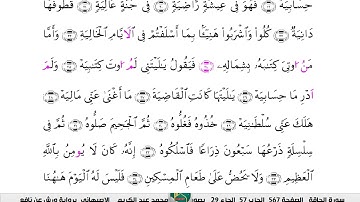 حِسَابِيَهْ ۝ فَهُوَ فِے عِيشَةٖ رَّاضِيَةٖ ۝ فِے جَنَّةٍ عَالِيَةٖ ۝ قُطُوفُهَا
دَانِيَةٞ ۝ كُلُواْ وَاشْرَبُواْ هَنِيٓـَٔۢا بِمَآ أَسْلَفْتُمْ فِے اِ۬لَايَّامِ اِ۬لْخَالِيَةِ ۝ وَأَمَّا
مَنُ اوتِيَ كِتَٰبَهُۥ بِشِمَالِهِۦ ۝ فَيَقُولُ يَٰلَيْتَنِے لَمُ اوتَ كِتَٰبِيَهْ ۝ وَلَمَ
اَدْرِ مَا حِسَابِيَهْ ۝ يَٰلَيْتَهَا كَانَتِ اِ۬لْقَاضِيَةَ ۝ مَآ أَغْنَىٰ عَنِّے مَالِيَهْ ۝
هَلَكَ عَنِّے سُلْطَٰنِيَهْ ۝ خُذُوهُ فَغُلُّوهُ ۝ ثُمَّ اَ۬لْجَحِيمَ صَلُّوهُ ۝ ثُمَّ فِے
سِلْسِلَةٖ ذَرْعُهَا سَبْعُونَ ذِرَاعاٗ فَاسْلُكُوهُ ۝ إِنَّهُۥ كَانَ لَا يُومِنُ بِاللَّهِ
اِ۬لْعَظِيمِ ۝ وَلَا يَحُضُّ عَلَىٰ طَعَامِ اِ۬لْمِسْكِينِ ۝ فَلَيْسَ لَهُ اُ۬لْيَوْمَ هَٰهُنَا
سورة الحاقة الصفحة 567 الحزب 57 الجزء 29 بصوت محمد عبد الكريم الاصبهاني برواية ورش عن نافع